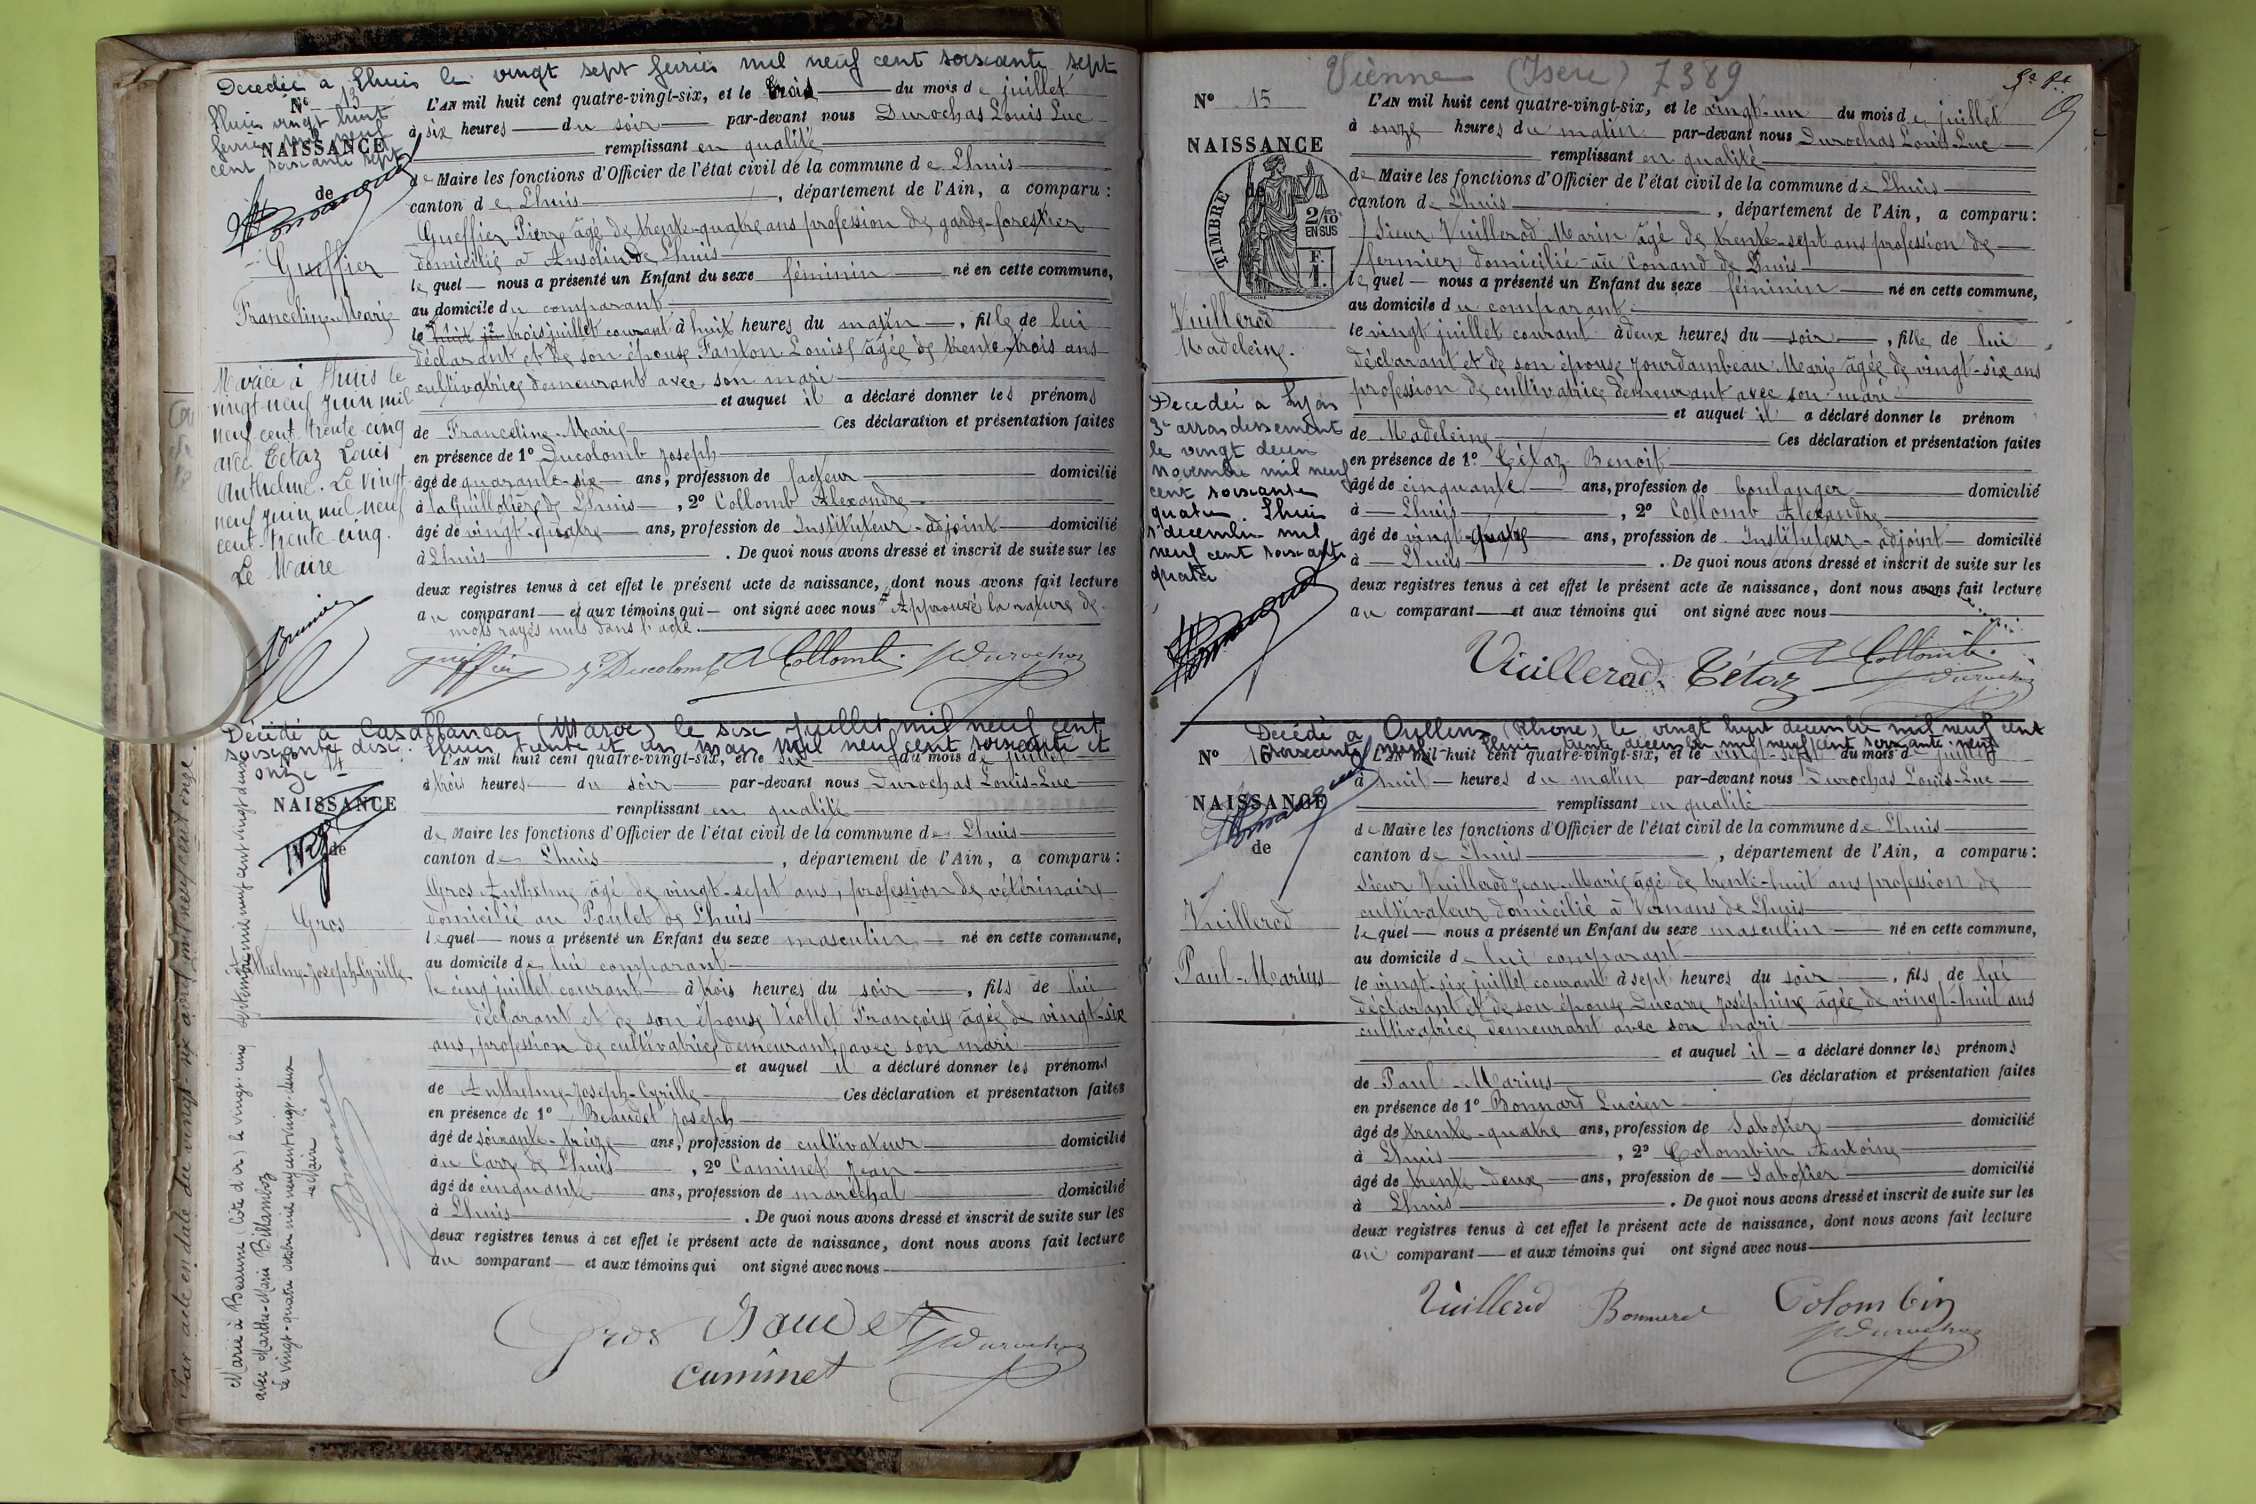 Décédée à Lhuis le vingt sept février mil neuf cent soixante sept
N° 13
Lhuis vingt huit
février mil neuf
cent soixante sept
NAISSANCE
de
Gueffier
Franceline-Marie
Mariée à Lhuis le
vingt-neuf juin mil
neuf cent trente cinq
avec Tétaz Louis
Anthelme. Le vingt
neuf juin mil neuf
cent trente cinq.
Le Maire
L'AN mil huit cent quatre-vingt-six, et le trois du mois de juillet
à six heures du soir par-devant nous Durochas Louis Luc
remplissant en qualité
de Maire les fonctions d'Officier de l'état civil de la commune de Lhuis
canton de Lhuis, département de l'Ain, a comparu :
Gueffier Pierre âgé de trente-quatre ans profession de garde-forestier
domicilié à Ansolin de Lhuis
lequel nous a présenté un Enfant du sexe féminin né en cette commune,
au domicile du comparant
le trois juillet courant à huit heures du matin, fille de lui
déclarant et de son épouse Fanton Louise âgée de trente-trois ans
cultivatrice demeurant avec son mari
et auquel il a déclaré donner les prénoms
de Franceline-Marie Ces déclaration et présentation faites
en présence de 1° Ducolomb Joseph
âgé de quarante-six ans, profession de facteur domicilié
à la Guillotière de Lhuis, 2° Collomb Alexandre
âgé de vingt-quatre ans, profession de Instituteur-adjoint domicilié
à Lhuis. De quoi nous avons dressé et inscrit de suite sur les
deux registres tenus à cet effet le présent acte de naissance, dont nous avons fait lecture
au comparant et aux témoins qui ont signé avec nous Approuvé la rature de
mots rayés nuls dans l'acte.
Gueffier J. Ducolomb A Collomb Durochas
Décédé à Casablanca (Maroc) le six juillet mil neuf cent
soixante dix. Lhuis trente et un mars mil neuf cent soixante et
onze
NAISSANCE
de
Gros
Anthelme-Joseph-Cyrille
Marié à Beaune (Côte d'or) le vingt-cinq septembre mil neuf cent vingt deux
avec Marthe-Marie Billamboz
Le vingt-quatre octobre mil neuf cent vingt-deux
Le Maire
Par acte en date du vingt-six avril mil neuf cent onze
L'AN mil huit cent quatre-vingt-six, et le six du mois de juillet
à trois heures du soir par-devant nous Durochas Louis-Luc
remplissant en qualité
de Maire les fonctions d'Officier de l'état civil de la commune de Lhuis
canton de Lhuis, département de l'Ain, a comparu :
Gros Anthelme âgé de vingt-sept ans, profession de vétérinaire
domicilié au Poulet de Lhuis
lequel nous a présenté un Enfant du sexe masculin né en cette commune,
au domicile de lui comparant
le cinq juillet courant à trois heures du soir, fils de lui
déclarant et de son épouse Viollet Françoise âgée de vingt-six
ans, profession de cultivatrice demeurant avec son mari
et auquel il a déclaré donner les prénoms
de Anthelme-Joseph-Cyrille Ces déclaration et présentation faites
en présence de 1° Beaudet Joseph
âgé de soixante-treize ans, profession de cultivateur domicilié
au Carre de Lhuis, 2° Caminet Jean
âgé de cinquante ans, profession de maréchal domicilié
à Lhuis. De quoi nous avons dressé et inscrit de suite sur les
deux registres tenus à cet effet le présent acte de naissance, dont nous avons fait lecture
au comparant et aux témoins qui ont signé avec nous
Gros Baudet Durochas
Caminet
Vienne (Isère) 7389
N° 15
NAISSANCE
de
TIMBRE
2/10
EN SUS
F.
1.
Vuillerod
Madeleine.
Décédée à Lyon
3e arrondissement
le vingt deux
novembre mil neuf
cent soixante
quatre Lhuis
1er décembre mil
neuf cent soixante
quatre
L'AN mil huit cent quatre-vingt-six, et le vingt-un du mois de juillet
à onze heures du matin par-devant nous Durochas Louis Luc
remplissant en qualité
de Maire les fonctions d'Officier de l'état civil de la commune de Lhuis
canton de Lhuis, département de l'Ain, a comparu :
Sieur Vuillerod Marin âgé de trente-sept ans profession de
fermier domicilié au Conand de Lhuis
lequel nous a présenté un Enfant du sexe féminin né en cette commune,
au domicile du comparant
le vingt juillet courant à deux heures du soir, fille de lui
déclarant et de son épouse Jourdambeau Marie âgée de vingt-six ans
profession de cultivatrice demeurant avec son mari
et auquel il a déclaré donner le prénom
de Madeleine Ces déclaration et présentation faites
en présence de 1° Tétaz Benoit
âgé de cinquante ans, profession de boulanger domicilié
à Lhuis, 2° Collomb Alexandre
âgé de vingt-quatre ans, profession de Instituteur-adjoint domicilié
à Lhuis. De quoi nous avons dressé et inscrit de suite sur les
deux registres tenus à cet effet le présent acte de naissance, dont nous avons fait lecture
au comparant et aux témoins qui ont signé avec nous
Vuillerod Tétaz A Collomb Durochas
Décédé à Oullins (Rhône) le vingt huit décembre mil neuf cent
soixante neuf Lhuis trente décembre mil neuf cent soixante-neuf
N° 16
NAISSANCE
de
Vuillerod
Paul-Marius
L'AN mil huit cent quatre-vingt-six, et le vingt-sept du mois de juillet
à huit heures du matin par-devant nous Durochas Louis-Luc
remplissant en qualité
de Maire les fonctions d'Officier de l'état civil de la commune de Lhuis
canton de Lhuis, département de l'Ain, a comparu :
Sieur Vuillerod Jean-Marie âgé de trente-huit ans profession de
cultivateur domicilié à Vernans de Lhuis
lequel nous a présenté un Enfant du sexe masculin né en cette commune,
au domicile de lui comparant
le vingt-six juillet courant à sept heures du soir, fils de lui
déclarant et de son épouse Ducarre Joséphine âgée de vingt-huit ans
cultivatrice demeurant avec son mari
et auquel il a déclaré donner les prénoms
de Paul-Marius Ces déclaration et présentation faites
en présence de 1° Bonnard Lucien
âgé de trente-quatre ans, profession de Sabotier domicilié
à Lhuis, 2° Colombin Antoine
âgé de trente-deux ans, profession de Sabotier domicilié
à Lhuis. De quoi nous avons dressé et inscrit de suite sur les
deux registres tenus à cet effet le présent acte de naissance, dont nous avons fait lecture
au comparant et aux témoins qui ont signé avec nous
Vuillerod Bonnard Colombin
Durochas